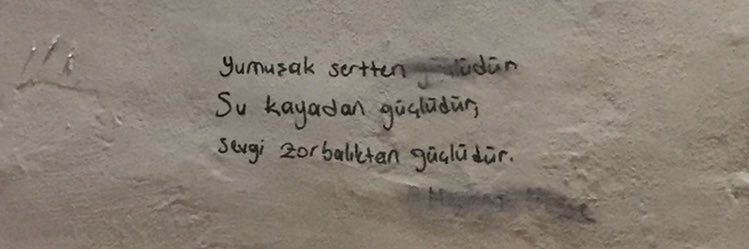 Yumuşak sertten güçlüdür
Su kayadan güçlüdür,
Sevgi zorbalıktan güçlüdür.